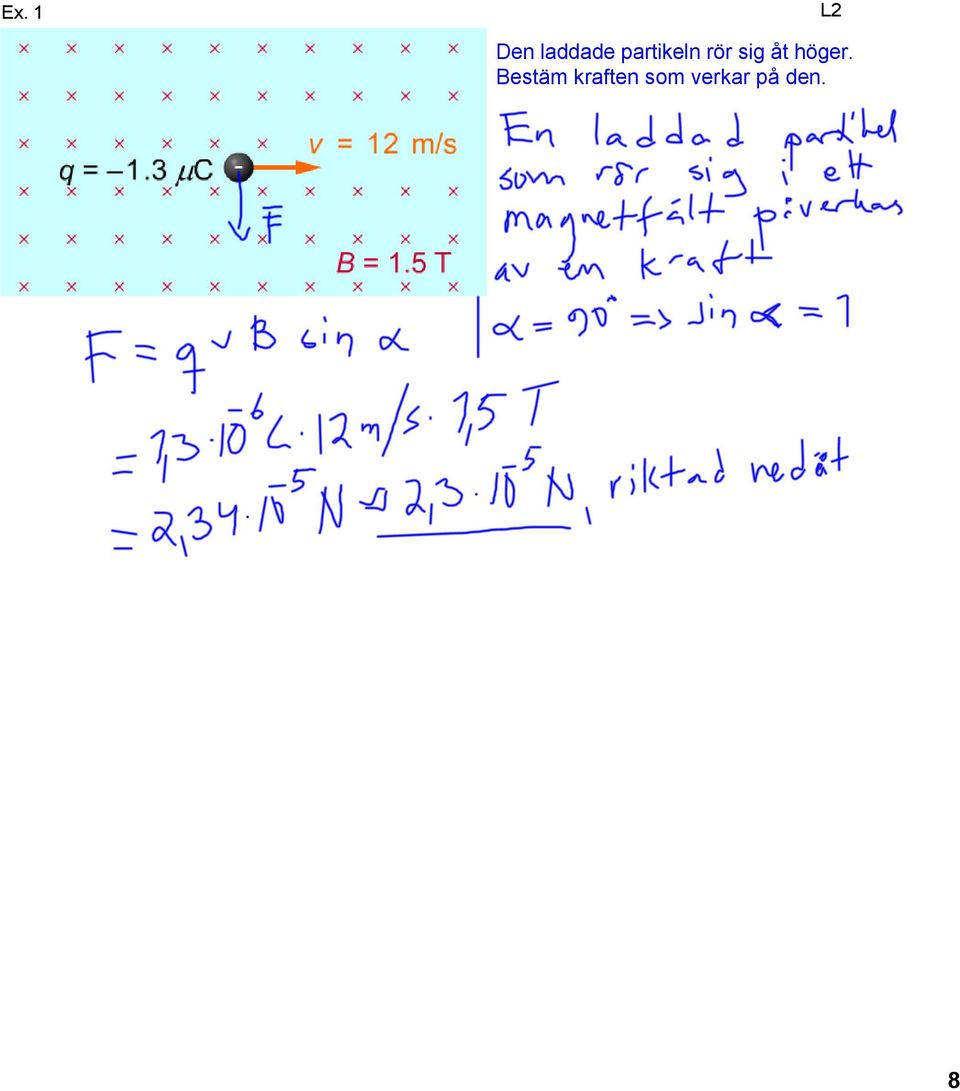 Ex. 1
L2
Den laddade partikeln rör sig åt höger.
Bestäm kraften som verkar på den.
v = 12 m/s
q = –1.3 μC
-
F
B = 1.5 T
En laddad partikel
som rör sig i ett
magnetfält påverkas
av en kraft
F = q v B sin α
α = 90° => sin α = 1
= 1,3·10⁻⁶ C · 12 m/s · 1,5 T
= 2,34·10⁻⁵ N ≈ 2,3·10⁻⁵ N, riktad nedåt
8